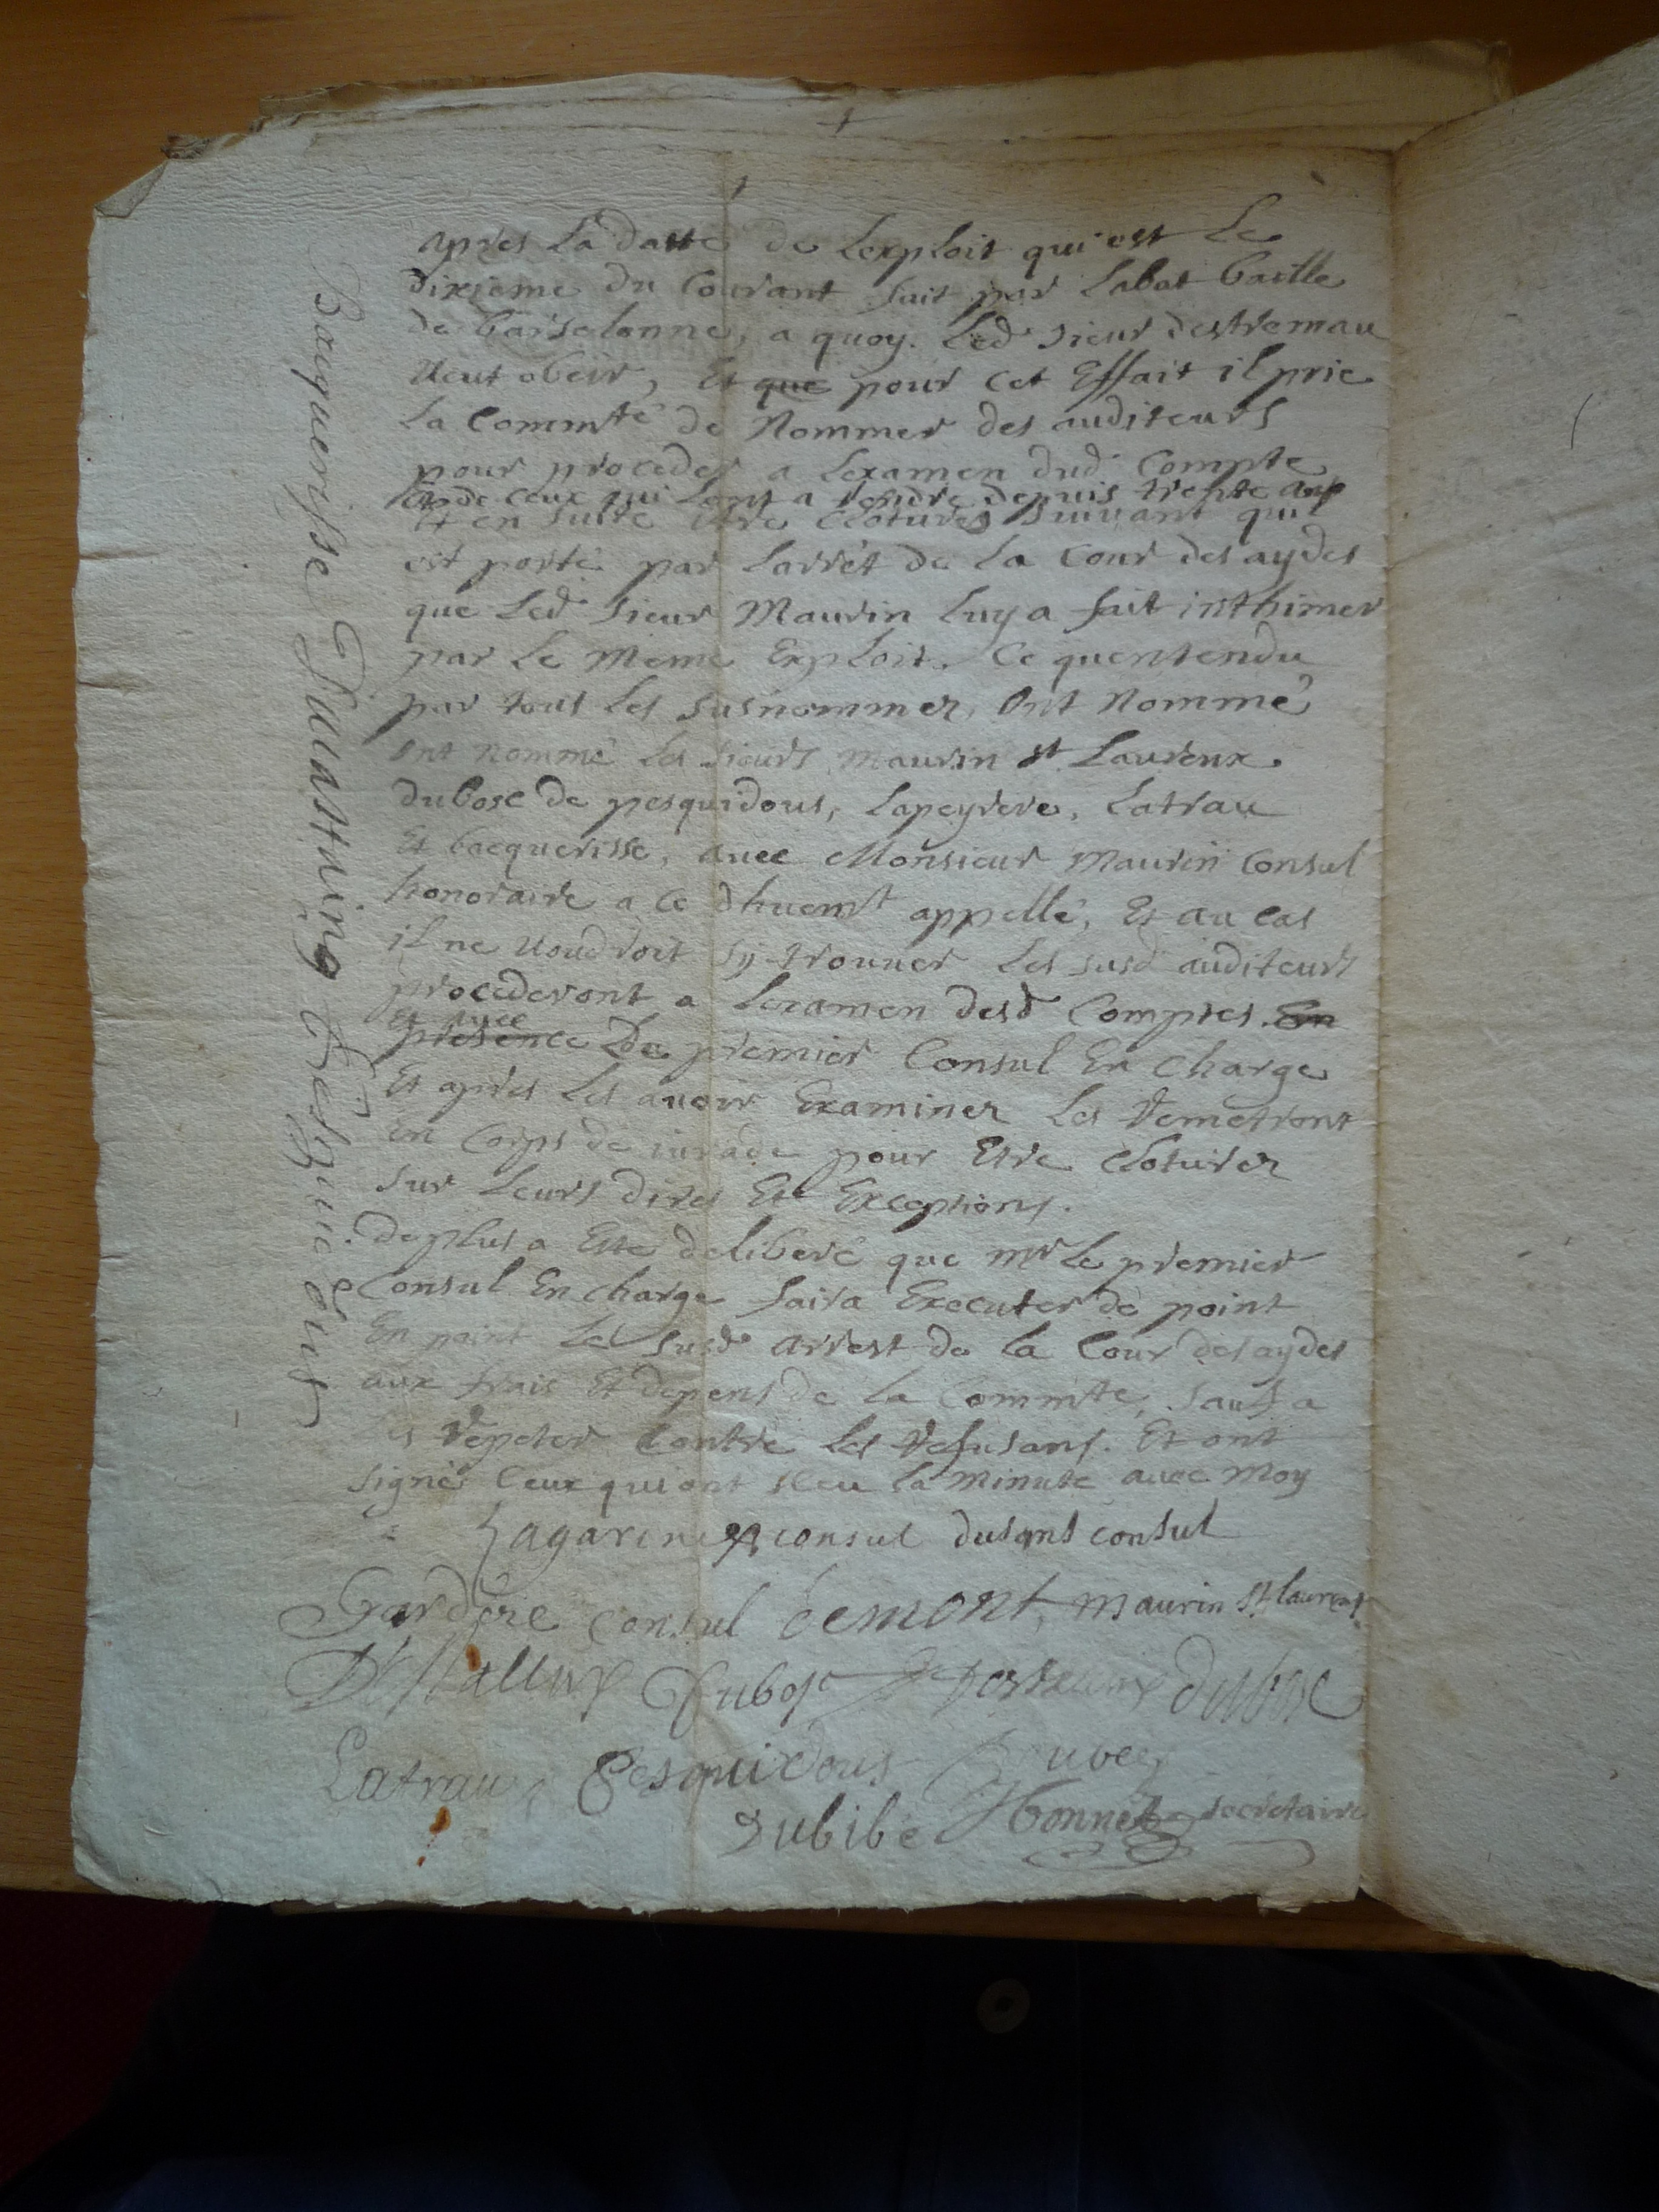 apres La datte de Lexploit qui est Le
dixieme du Courant fait par Labat baille
de barselonne, a quoy. Led sieur destremau
veut obeir, Et que pour cet Effait il prie
La Commté de Nommer des auditeurs
pour proceder a Lexamen dud Compte
Et de ceux qui sont a rendre depuis trente ans
Et en suite Etre Cloturés suivant quil
est porté par Larrêt de La Cour des aydes
que Led sieur Maurin Luy a fait inthimer
par Le même Exploit. Ce quentendu
par tous Les susnommez, Ont Nommé
ont nommé Les sieurs Maurin st Laurenx
dubosc de pesquidous, Lapeyrere, Latrau
Et bacquerisse, avec Monsieur Maurin Consul
honoraire a ce dhuemt appellé, Et au cas
il ne voudroit sy trouver Les susd auditeurs
procederont a Lexamen desd Comptes. En
Et avec
presence Du premier Consul En Charge
Et apres Les avoir Examinez Les remetront
En Corps de jurade pour Etre Cloturez
sur Leurs dires Et Exceptions.
De plus a Este deliberé que Mr Le premier
Consul En charge faira Executer de point
En point Le susd arrest de La Cour des aydes
aux frais Et depens de La Commté, sauf a
Les repeter Contre Les refusans. Et ont
signé Ceux qui ont sceu La Minute avec Moy
Lagarine consul dusans consul
Gardere Consul bemont, maurin st laurens
Dubosc dubosc
Latrau Pesquidous
dubibe secretaire
Bacquerisse